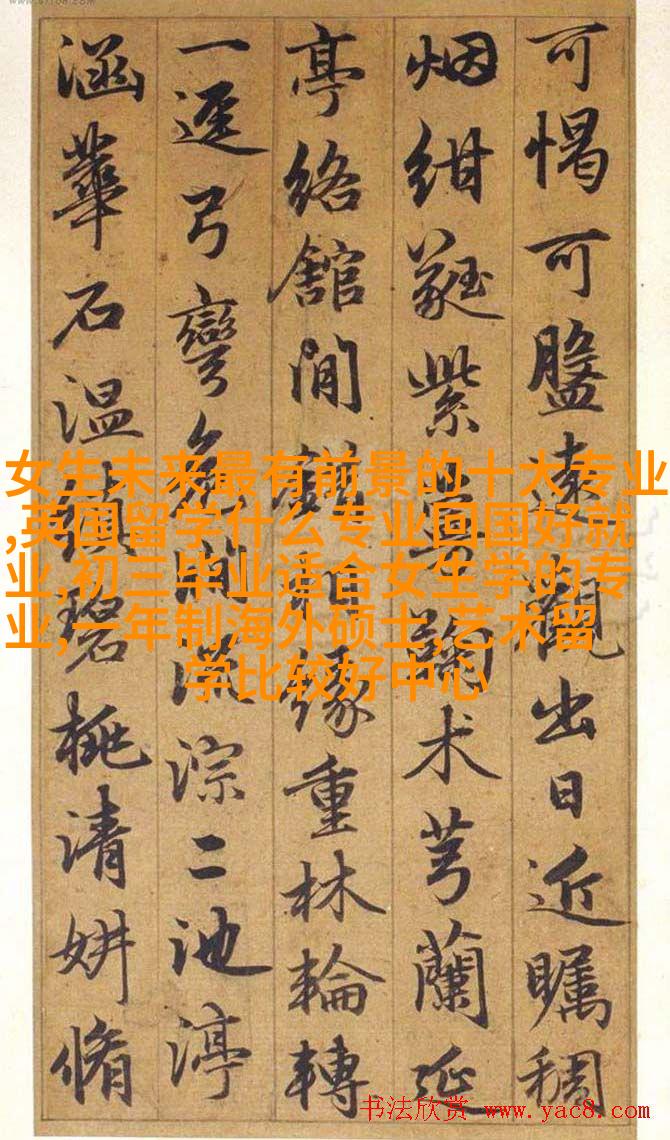 女生未来最有前景的十大专业
,英国留学什么专业回国好就
业,初三毕业适合女生学的专
业,一年制海外硕士,艺术留
学比较好中心
可愒可盤遠觀出日近矚稠
烟紺蕤紫术芎蘭延
亭絡舘閒緣重林輪轉
一逕弓彎淙二池渟
涵華石温碧桃清妍脩
书法欣赏 www.yac8.com